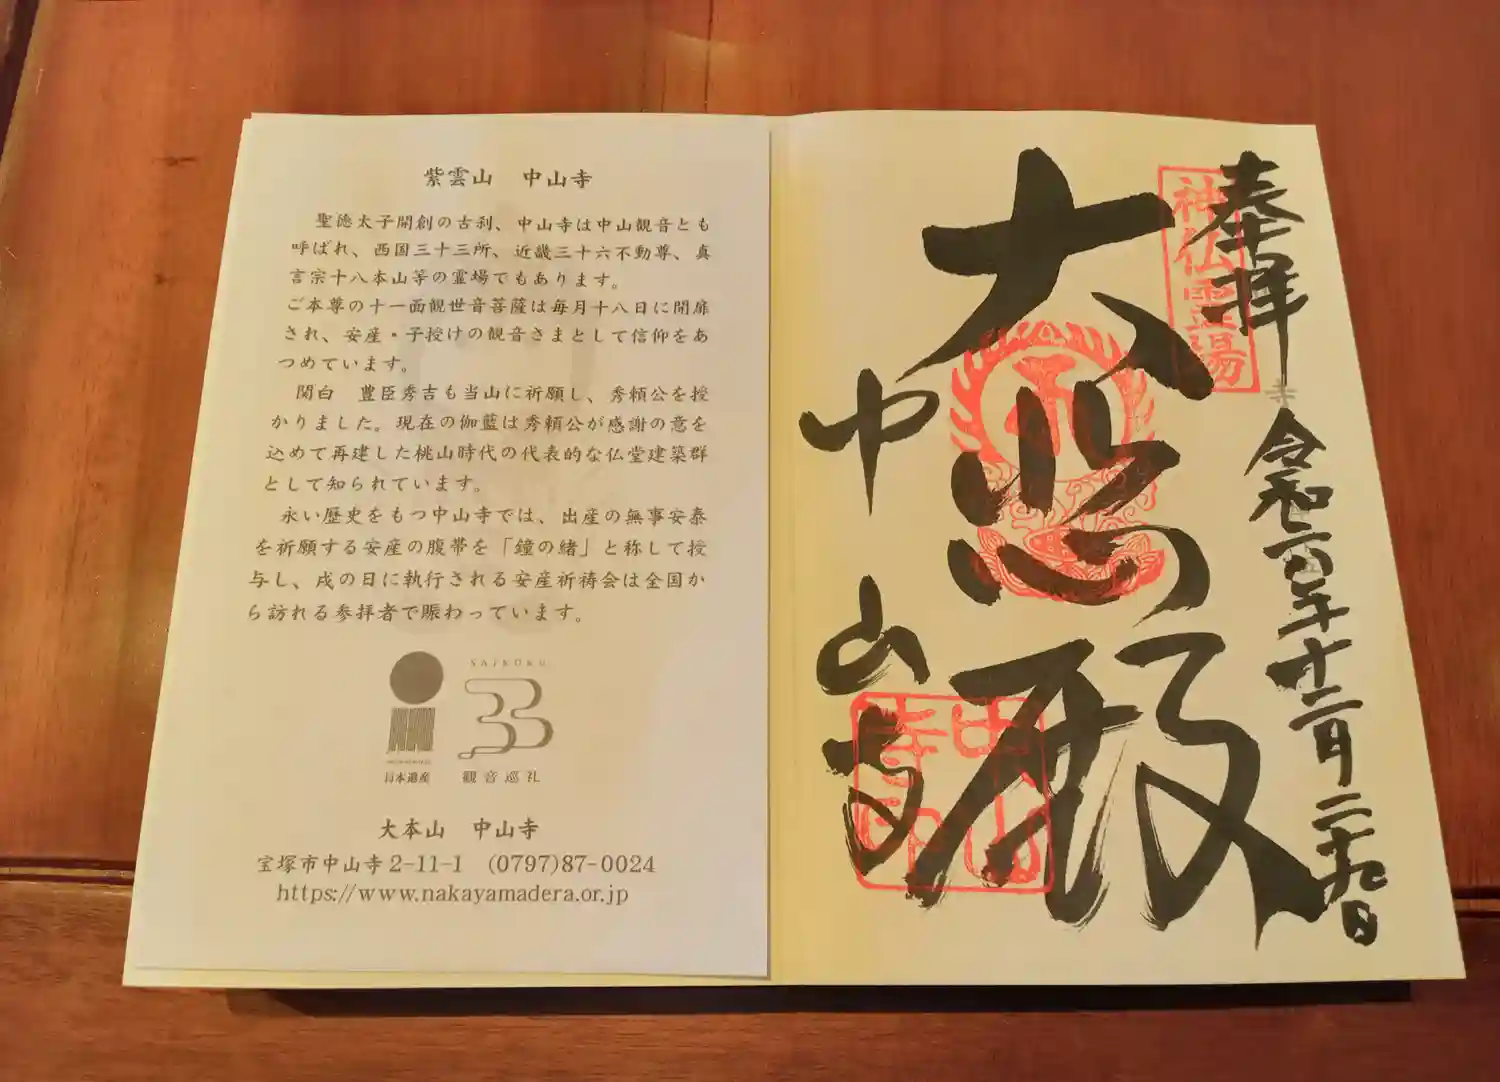 紫雲山　中山寺
聖徳太子開創の古刹、中山寺は中山観音とも
呼ばれ、西国三十三所、近畿三十六不動尊、真
言宗十八本山等の霊場でもあります。
ご本尊の十一面観世音菩薩は毎月十八日に開扉
され、安産・子授けの観音さまとして信仰をあ
つめています。
関白　豊臣秀吉も当山に祈願し、秀頼公を授
かりました。現在の伽藍は秀頼公が感謝の意を
込めて再建した桃山時代の代表的な仏堂建築群
として知られています。
永い歴史をもつ中山寺では、出産の無事安泰
を祈願する安産の腹帯を「鐘の緒」と称して授
与し、戌の日に執行される安産祈祷会は全国か
ら訪れる参拝者で賑わっています。
日本遺産
SAIKOKU
33
観音巡礼
大本山　中山寺
宝塚市中山寺2-11-1　(0797)87-0024
https://www.nakayamadera.or.jp
奉拝
神仏霊場
寺
令和 年十二月二十九日
大悲殿
中山寺
中山寺印